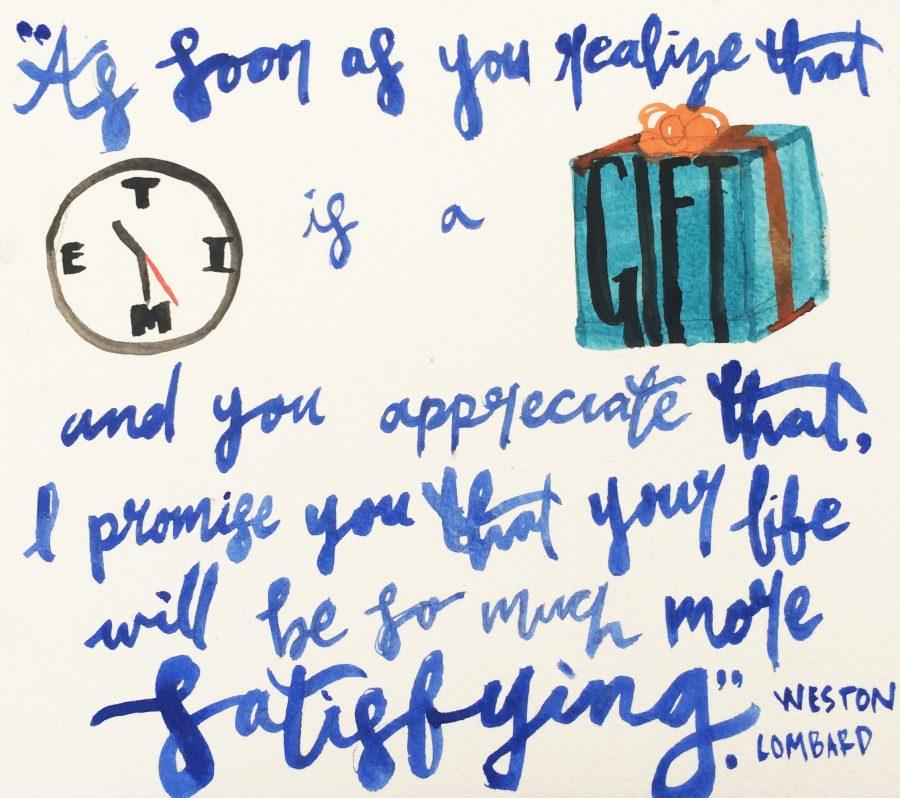 "As soon as you realize that
TIME is a GIFT
and you appreciate that,
I promise you that your life
will be so much more
satisfying".
WESTON
LOMBARD